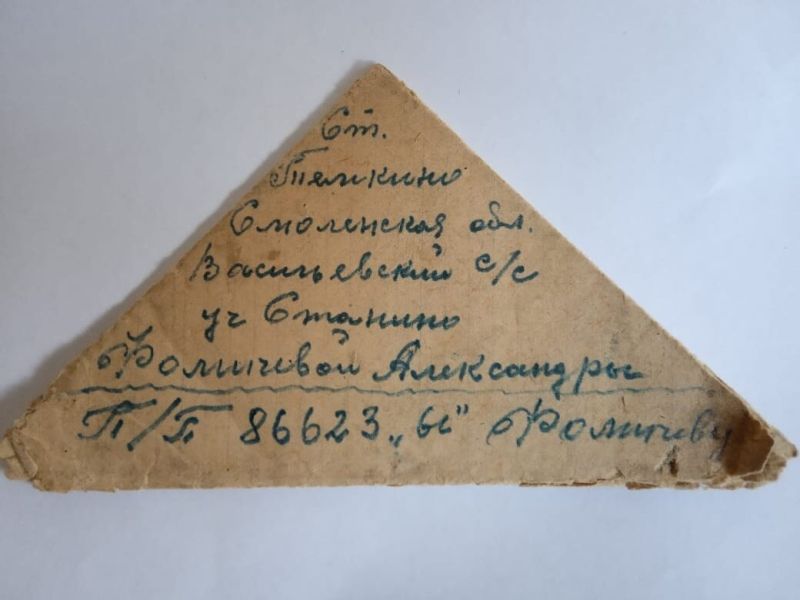 Ст.
Темкино
Смоленская обл.
Васильевский с/с
уч Станино
Фомичевой Александры
П/П 86623 „Ы" Фомичеву